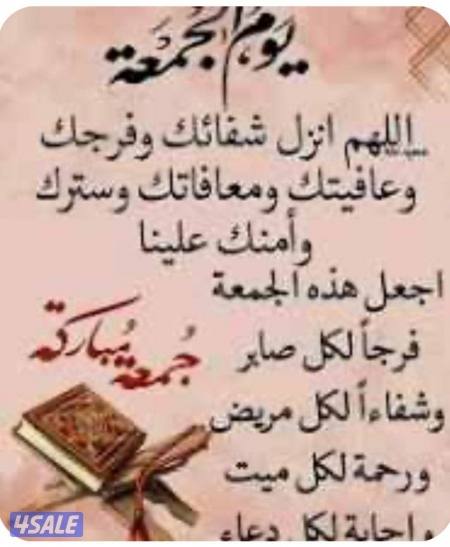 يوم الجمعة
اللهم انزل شفائك وفرجك
وعافيتك ومعافاتك وسترك
وأمنك علينا
اجعل هذه الجمعة
فرجاً لكل صابر
جُمعة مُباركة
وشفاءاً لكل مريض
ورحمة لكل ميت
واجابة لكل دعاء
4SALE